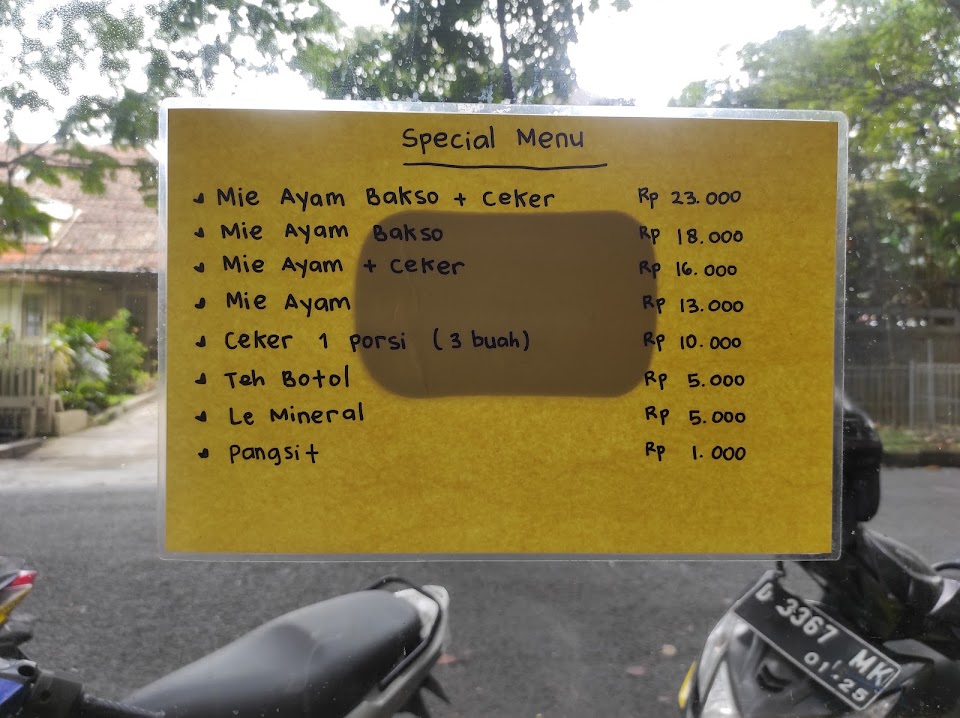 Special Menu
Mie Ayam Bakso + Ceker Rp 23.000
Mie Ayam Bakso Rp 18.000
Mie Ayam + Ceker Rp 16.000
Mie Ayam Rp 13.000
Ceker 1 porsi (3 buah) Rp 10.000
Teh Botol Rp 5.000
Le Mineral Rp 5.000
Pangsit Rp 1.000
D 3367 MK
01.25